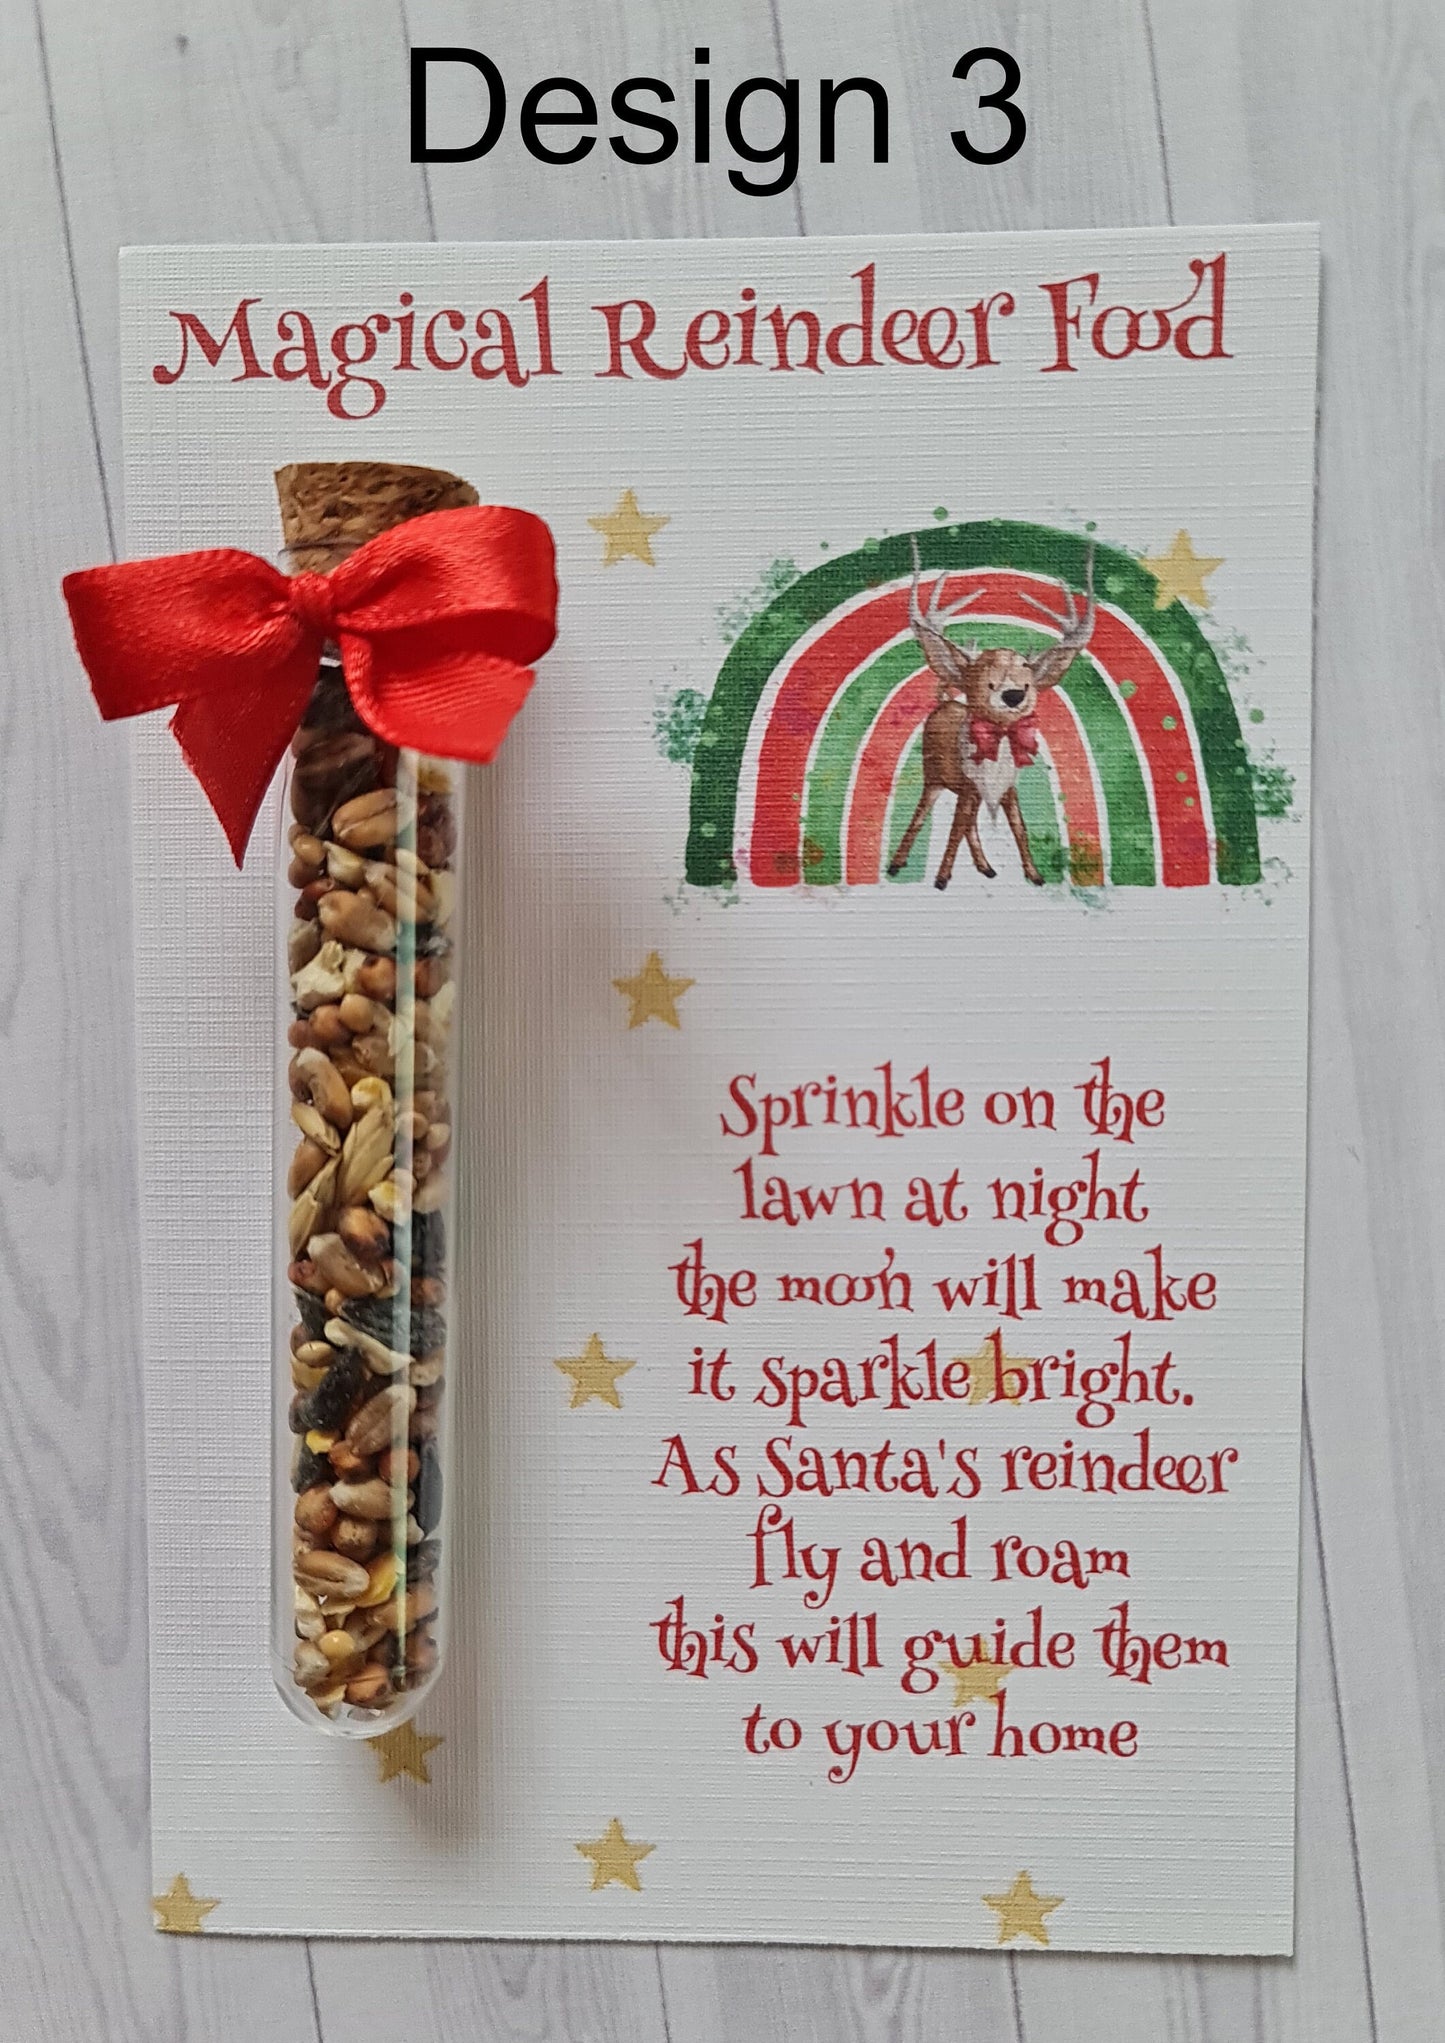 Design 3
Magical Reindeer Food
Sprinkle on the
lawn at night
the moon will make
it sparkle bright.
As Santa's reindeer
fly and roam
this will guide them
to your home